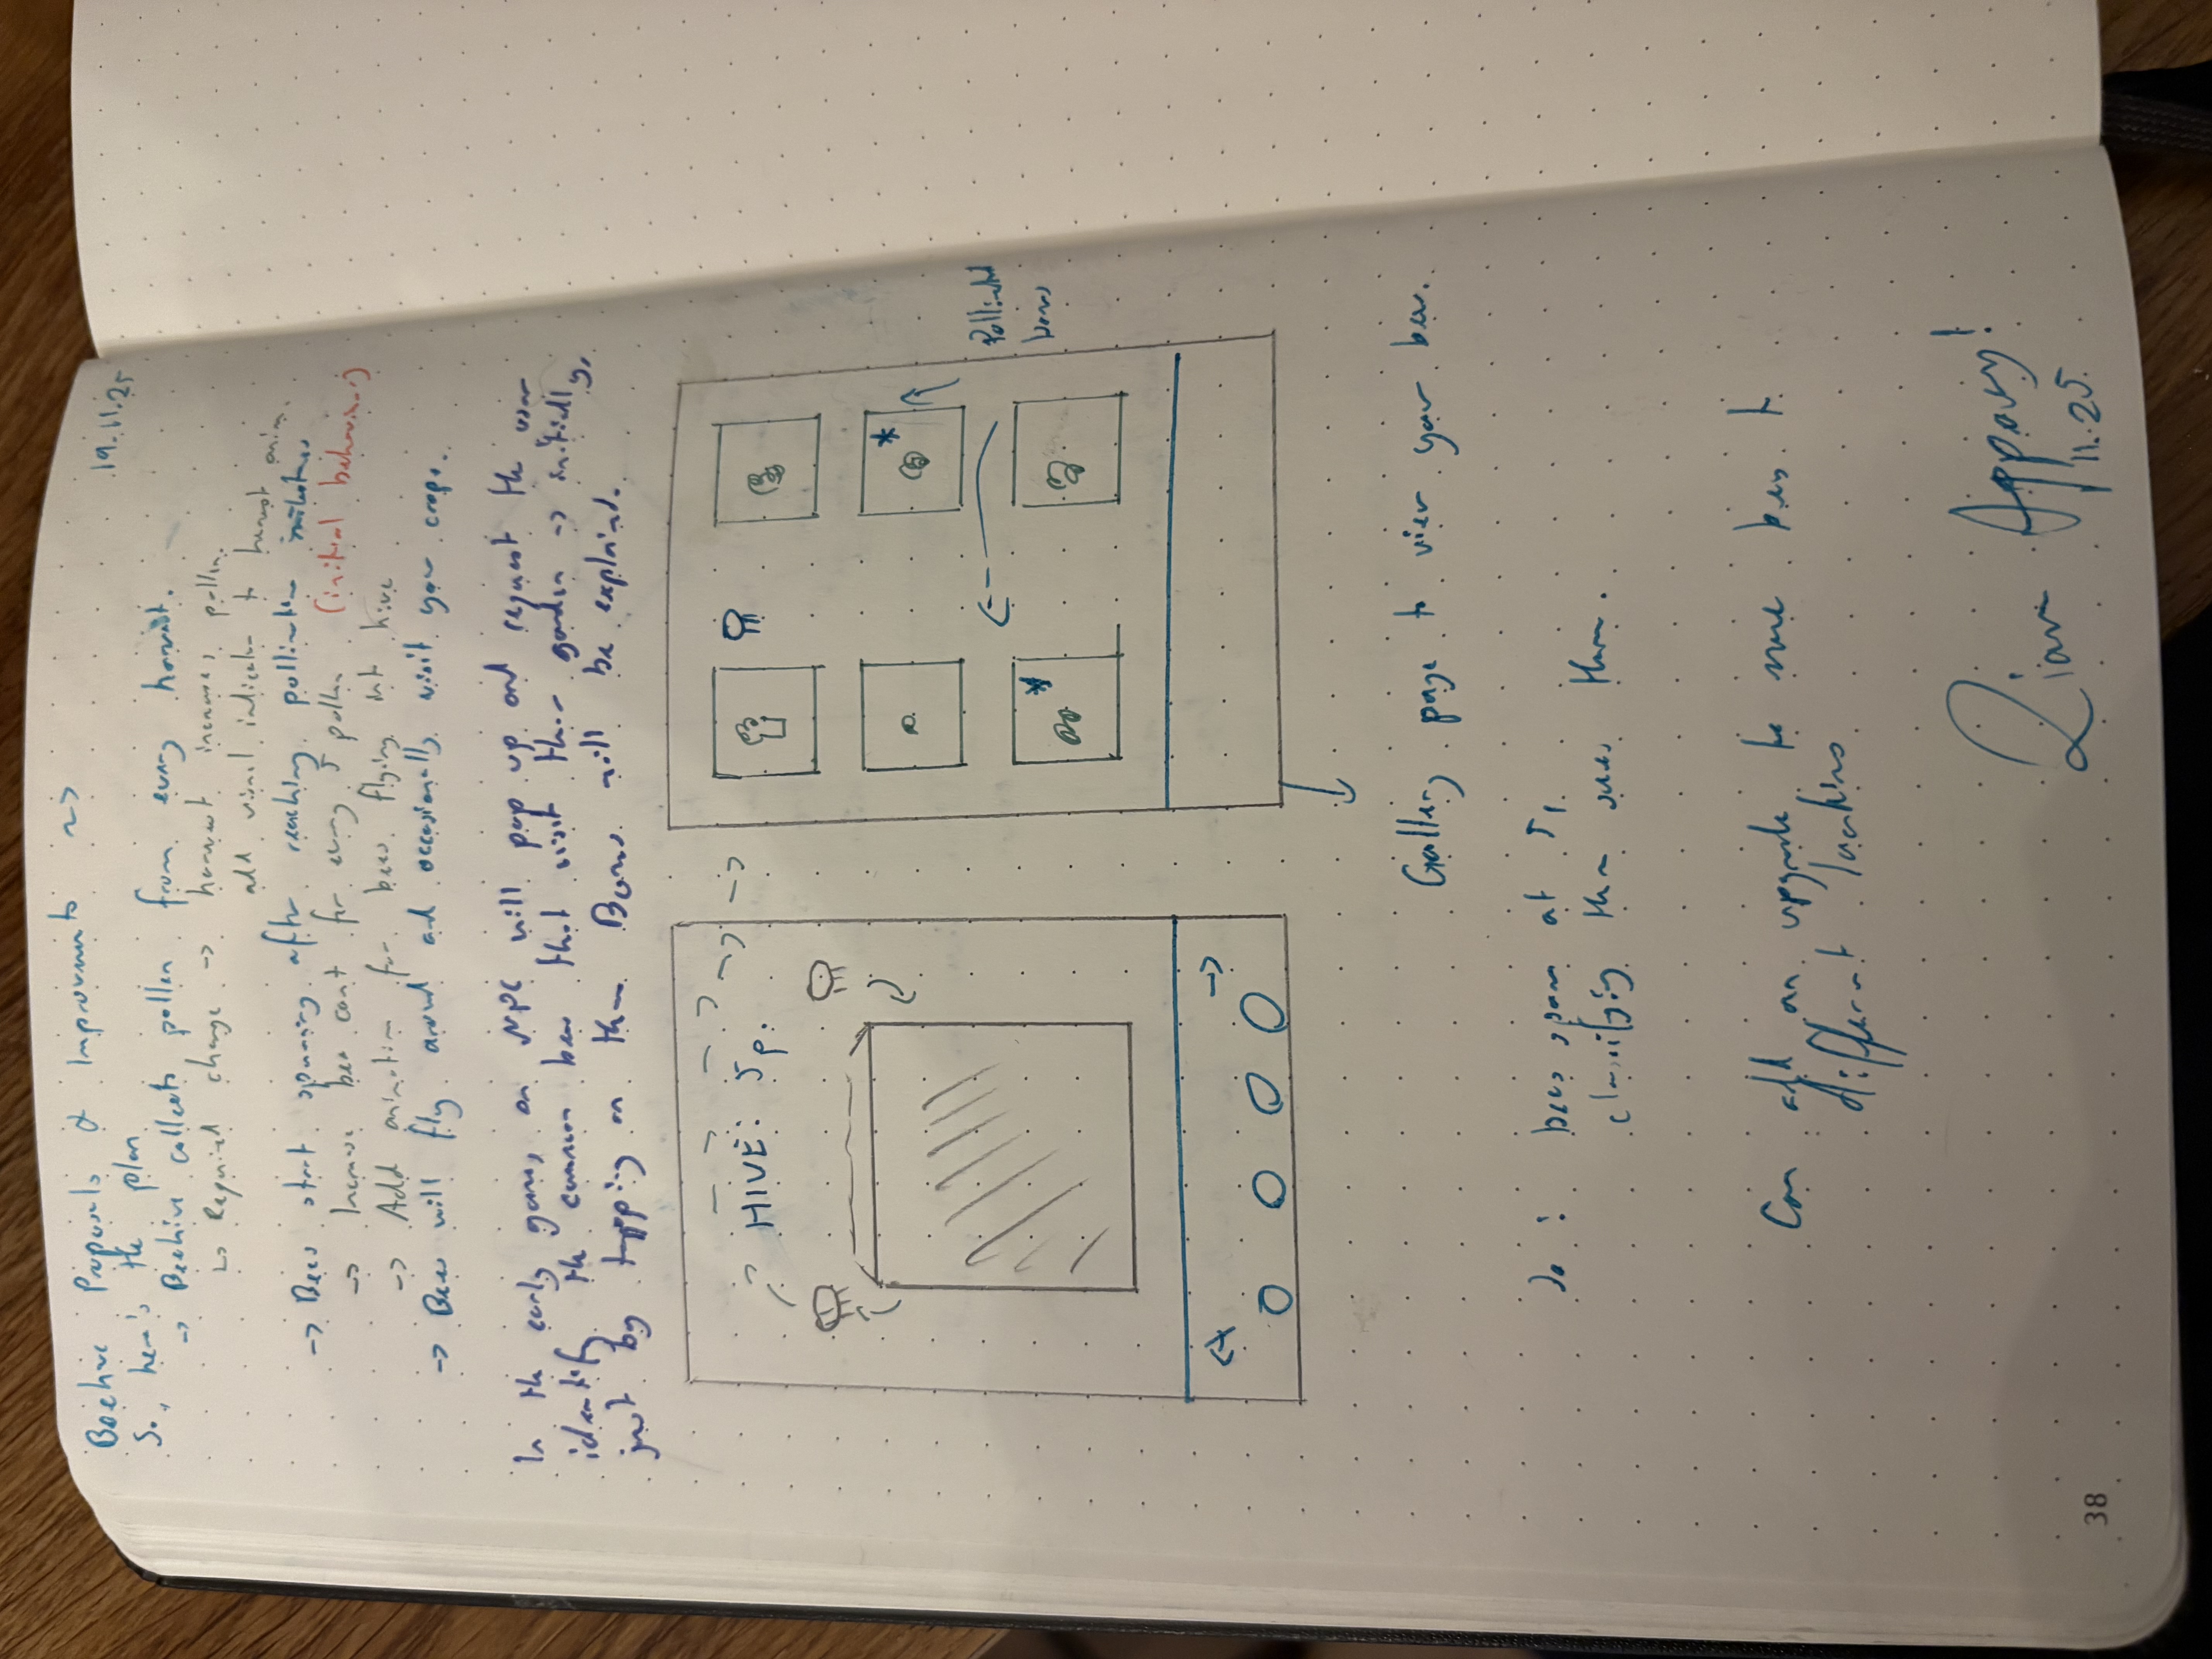 Beehive Proposals & Improvements ~>
19.11.25
So, here's the plan
-> Beehive collects pollen from every harvest.
↳ Required change -> harvest increases pollen
add visual indicator to harvest anim.
-> Bees start spawning after reaching pollination milestones
-> Increase bee count for every 5 pollen (initial behaviour)
-> Add animation for bees flying into hive
-> Bees will fly around and occasionally visit your crops.
In the early game, an NPC will pop up and request the user
identify the common bees that visit their garden -> initially,
just by tapping on them. Bees will be explained.
HIVE: 5p.
Gallery page to view your bees.
So: bees spawn at 5,
classifying them them.
Can add an upgrade to move bees to
different locations
11.25
38